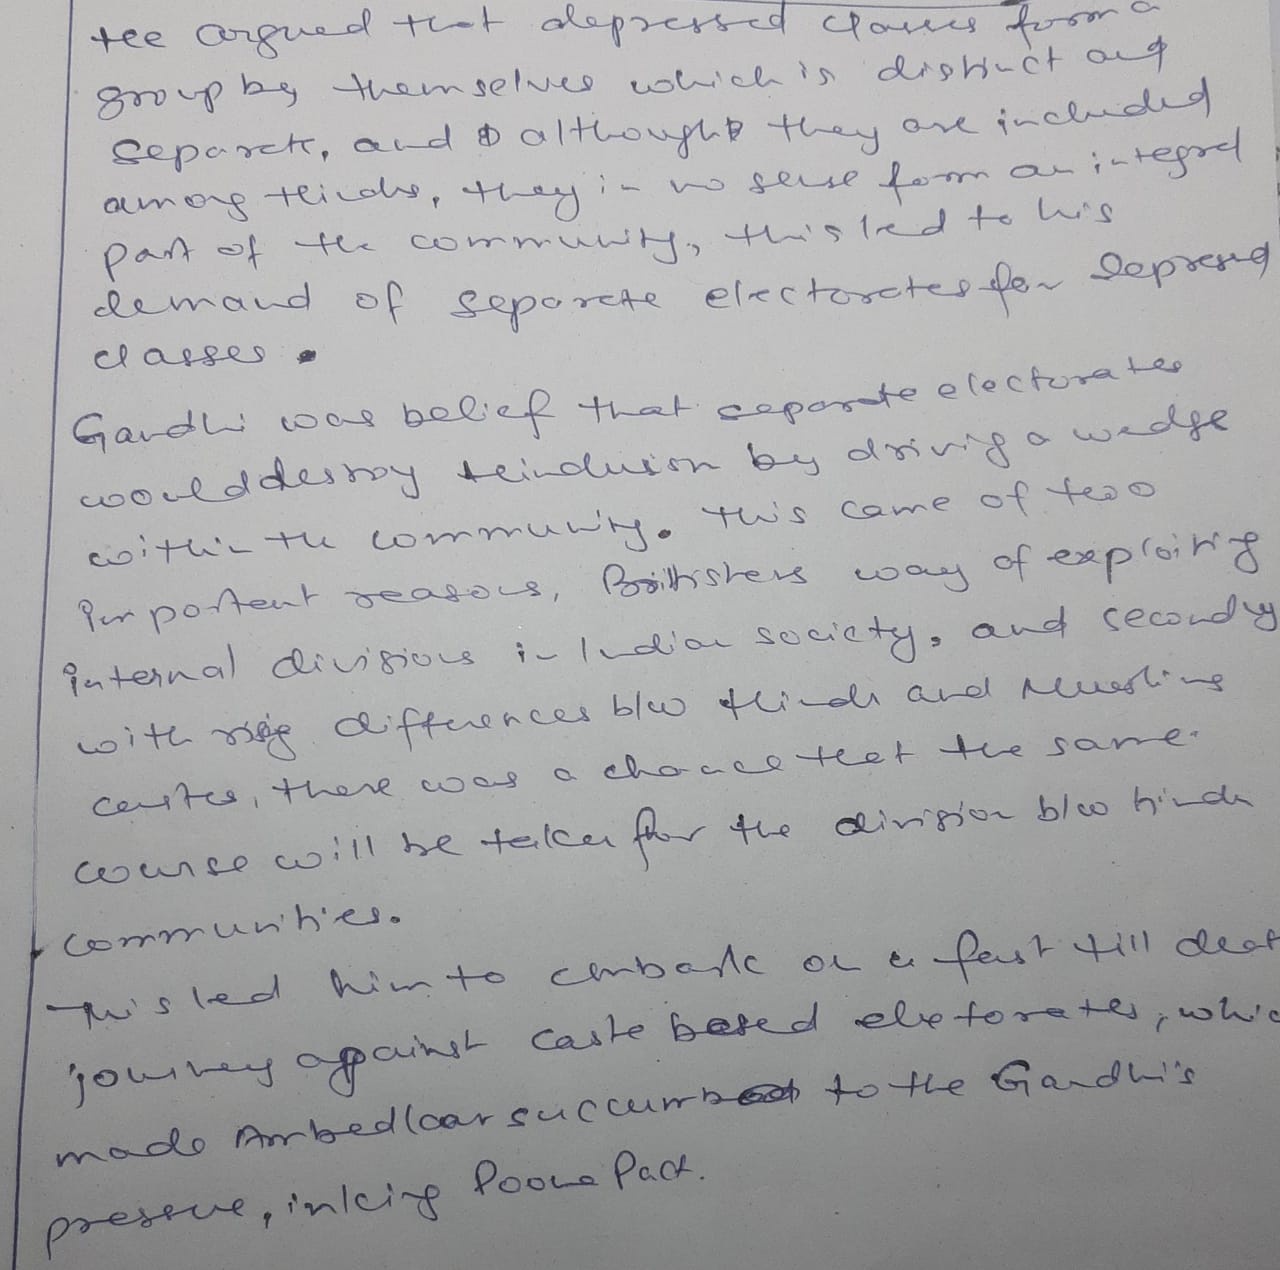 He argued that depressed classes form a
group by themselves which is distinct and
separate, and although they are included
among Hindus, they in no sense form an integral
part of the community, this led to his
demand of separate electorates for Depressed
classes.
Gandhi was belief that separate electorates
would destroy Hinduism by driving a wedge
within the community. This came of two
important reasons, Britishers way of exploiting
internal divisions in Indian society, and secondly
with rising differences b/w Hindu and Muslims
castes, there was a chance that the same
course will be taken for the division b/w hindu
communities.
This led him to embark on a fast till deat
journey against caste based electorates, whic
made Ambedkar succumb to the Gandhi's
pressure, inking Poona Pact.